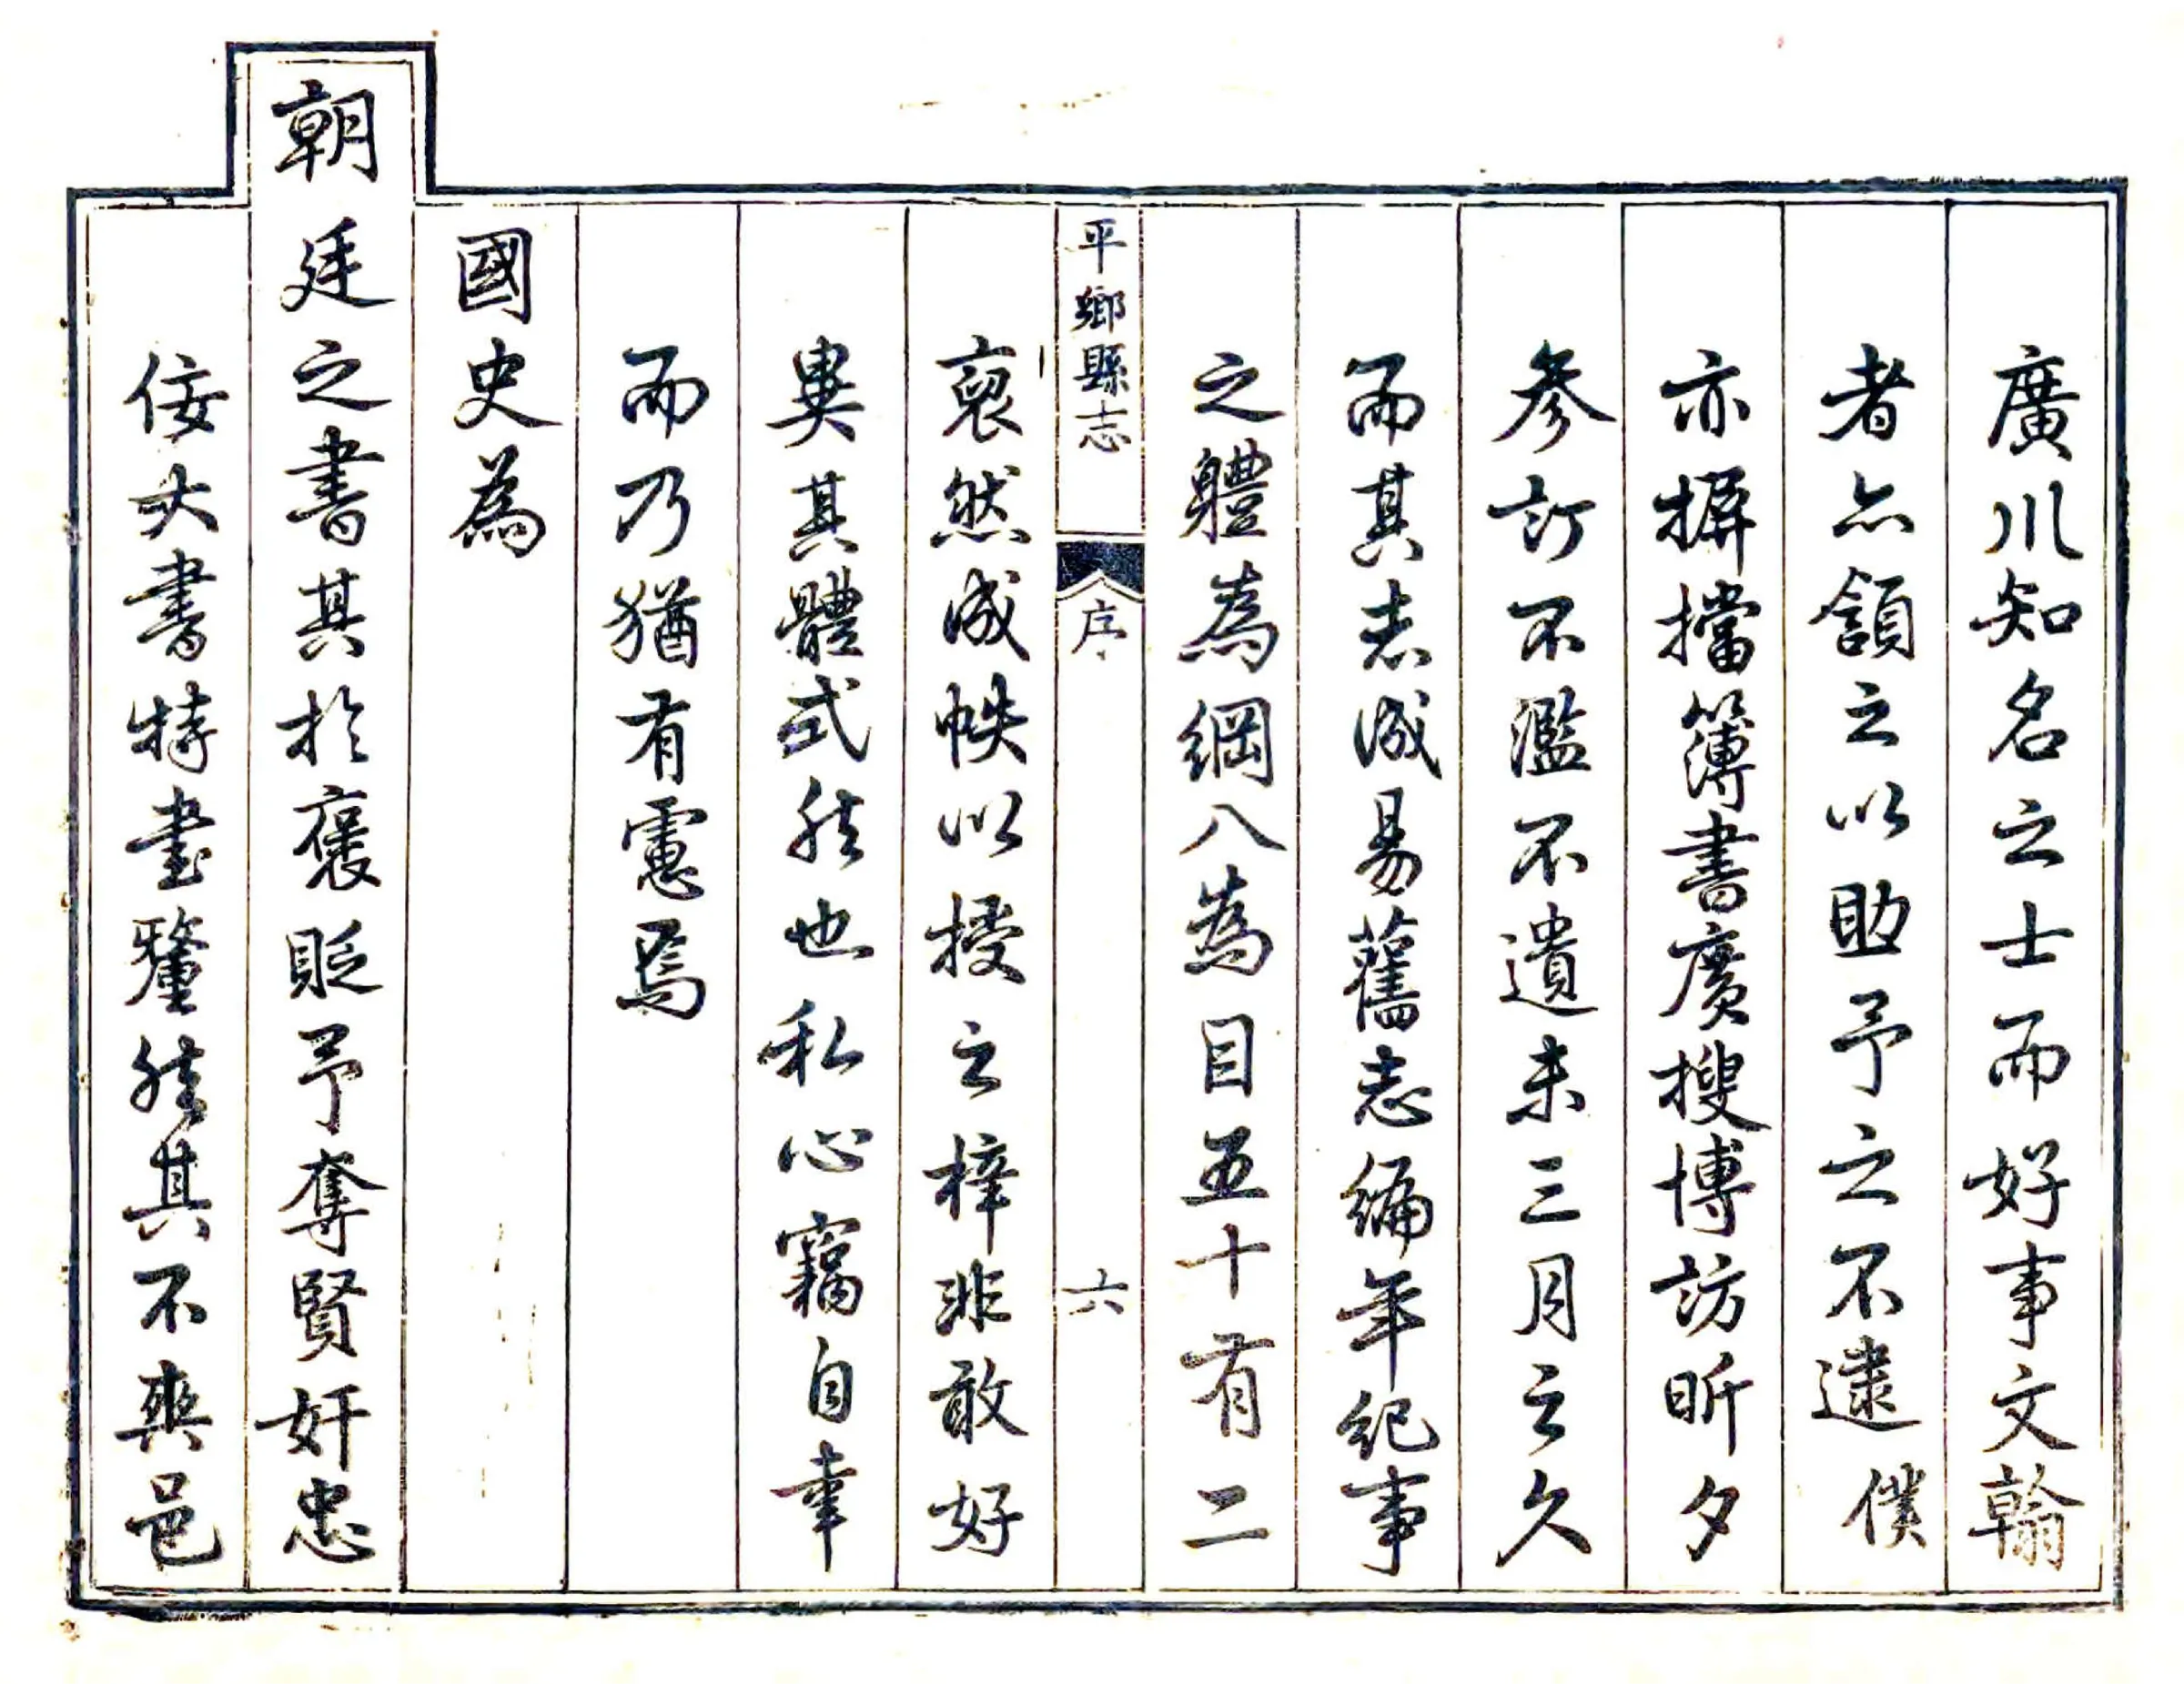 廣川知名之士而好事文翰
者亦額之以助予之不逮僕
亦摒擋簿書廣搜博訪昕夕
參訂不濫不遺未三月之久
而其志成易舊志編年紀事
之體為綱八為目五十有二
裒然成帙以授之梓非敢好
異其體式然也私心竊自幸
而乃猶有慮焉
國史為
朝廷之書其於褒貶予奪賢奸忠
佞大書特書釐然其不爽邑
平鄉縣志
序
六